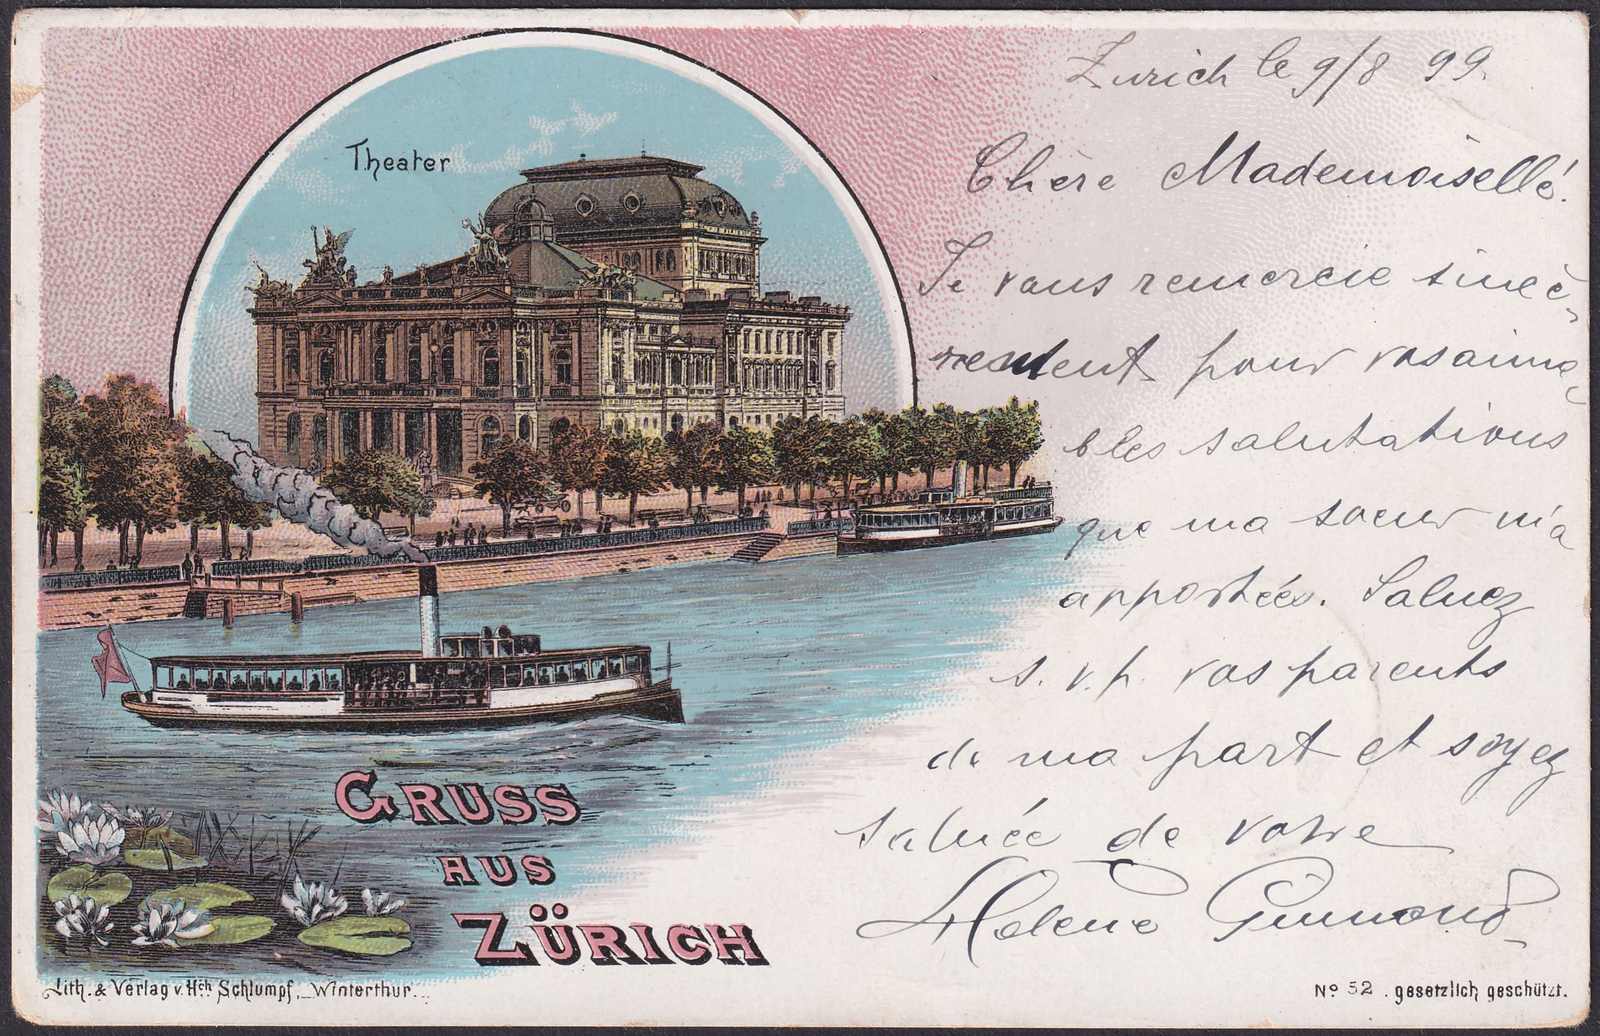 Theater
Zurich le 9/8 99.
Chère Mademoiselle!
Je vous remercie sincè-
rement pour vos aima-
bles salutations
que ma soeur m'a
apportées. Saluez
s. v. p. vos parents
de ma part et soyez
saluée de votre
Helene
GRUSS
AUS
ZÜRICH
Lith. & Verlag v. Hch. Schlumpf, Winterthur.
No 52 . gesetzlich geschützt.